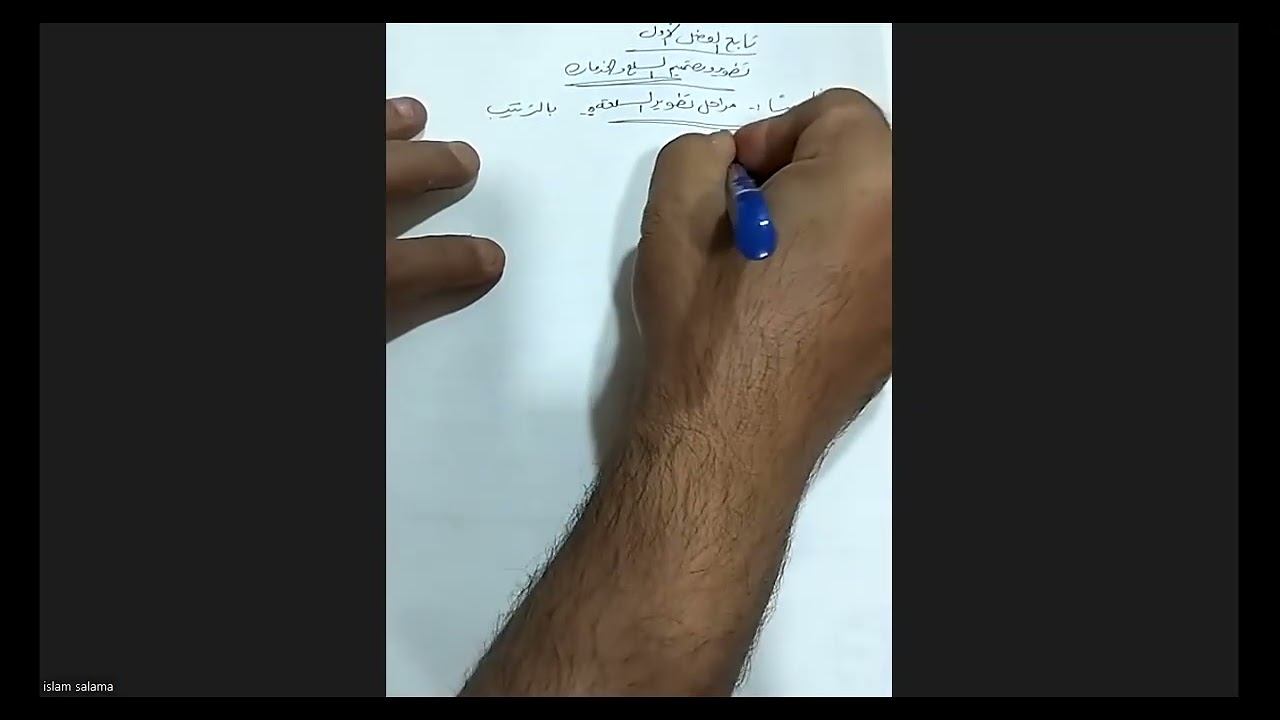 تابع الفصل الأول
تطوير وتصميم السلع والخدمات
مراحل تطوير السلعة بالترتيب
islam salama